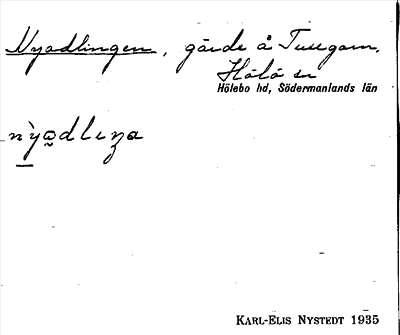 Nyodlingen, gärde å Tullgarn,
Hölö sn
Hölebo hd, Södermanlands län
nỳo̰dlıŋa
KARL-ELIS NYSTEDT 1935